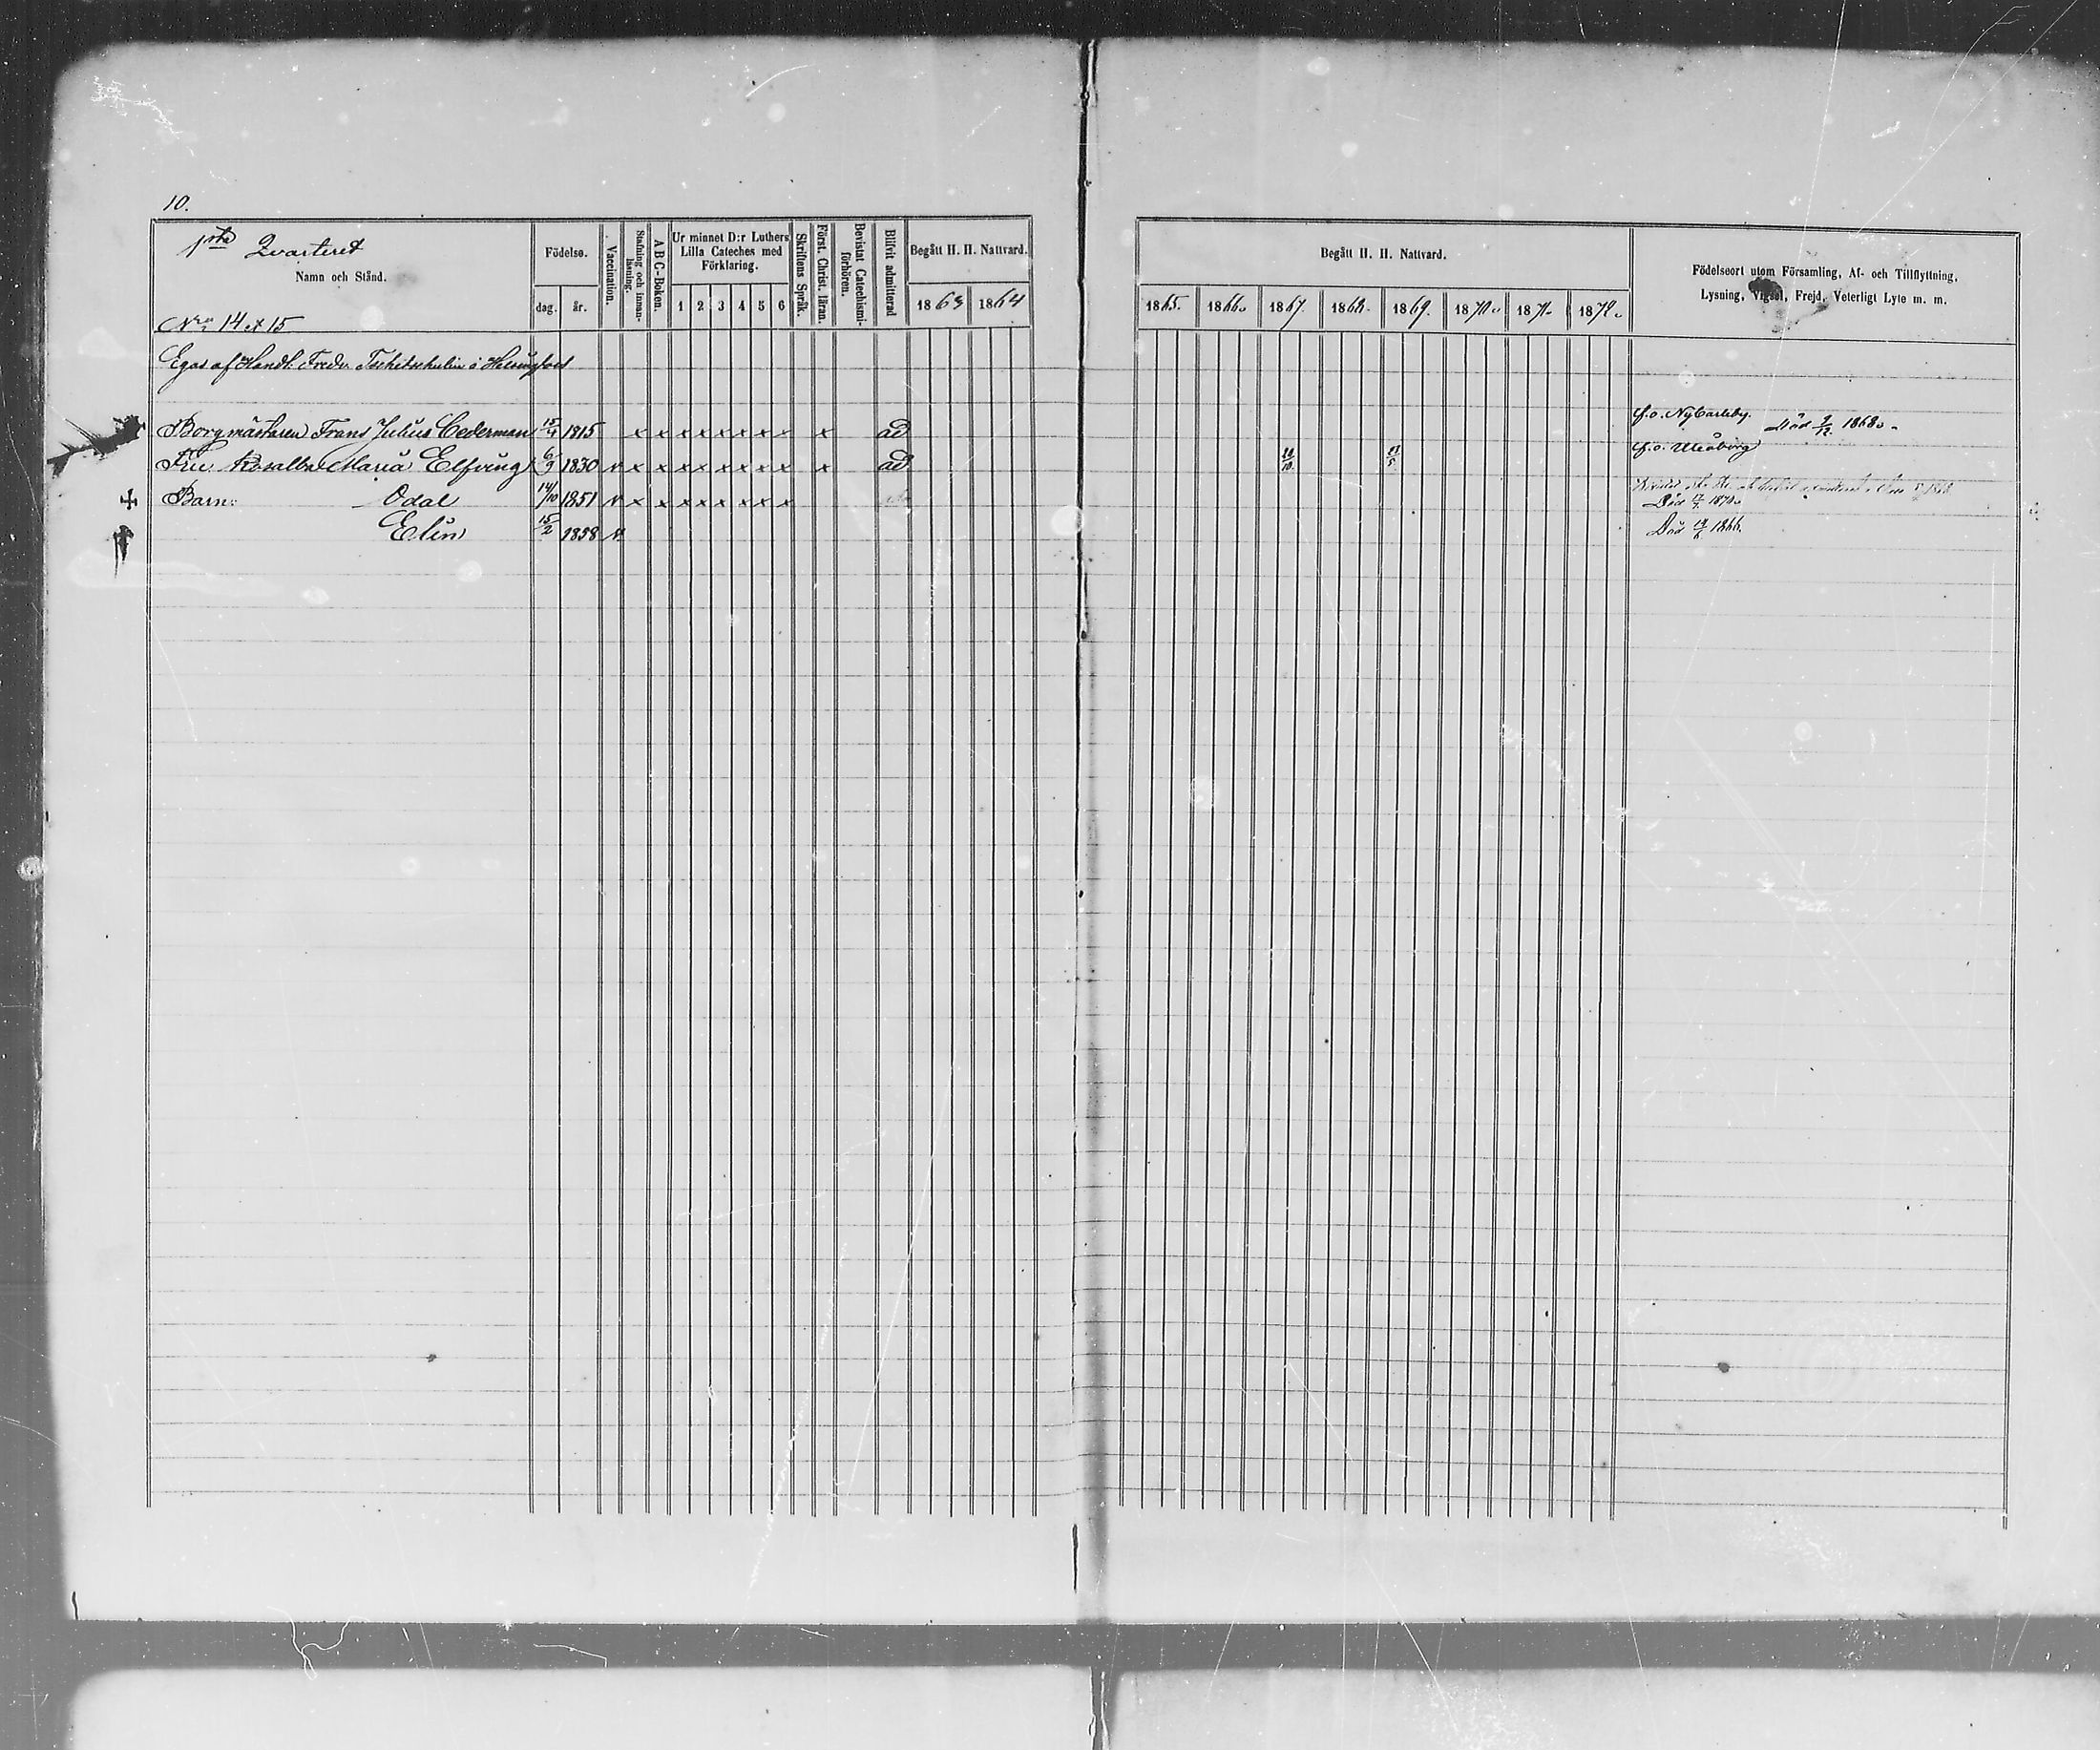 10.
1sta Qvarteret
Namn och Stånd.
Nro 14 & 15
Födelse.
dag. år.
Vaccination.
Stafning och innan-läsning.
ABC-Boken.
Ur minnet D:r Luthers
Lilla Cateches med
Förklaring.
1 2 3 4 5 6
Skriftens Språk.
Först. Christ. läran.
Bevistat Catechismi-förhören.
Blifvit admitterad
Begått H. H. Nattvard.
1863 1864
Begått H. H. Nattvard.
1865. 1866. 1867. 1868. 1869. 1870. 1871. 1872.
Födelseort utom Församling, Af- och Tillflyttning,
Lysning, Vigsel, Frejd, Veterligt Lyte m. m.
Egas af Handl. Fredr. Tschetschulin i Helsingfors
Borgmästaren Frans Julius Cederman 15/4 1815 x x x x x x x x x ad f.o. NyCarleby. Död 9/12 1868.
Fru Rosalba Maria Elfving 6/9 1830 v x x x x x x x x x ad f.o. Uleåborg
Barn: Odal 14/10 1851 v x x x x x x x x Död 17/7 1870.
Elin 15/2 1858 v. Död 19/6 1866.